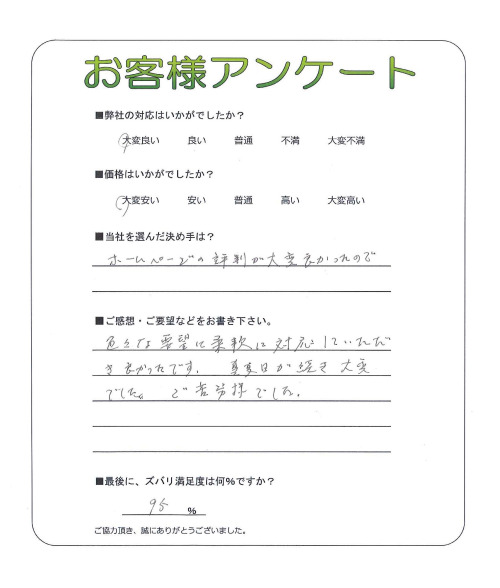 お客様アンケート
■弊社の対応はいかがでしたか？
大変良い 良い 普通 不満 大変不満
■価格はいかがでしたか？
大変安い 安い 普通 高い 大変高い
■当社を選んだ決め手は？
ホームページの評判が大変良かったので
■ご感想・ご要望などをお書き下さい。
色々な要望に柔軟に対応していただ
き良かったです。真夏日が続き大変
でした。ご苦労様でした。
■最後に、ズバリ満足度は何％ですか？
95 %
ご協力頂き、誠にありがとうございました。